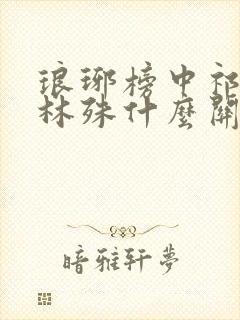 琅琊榜中祁
林殊什麼關
暗雅轩夢